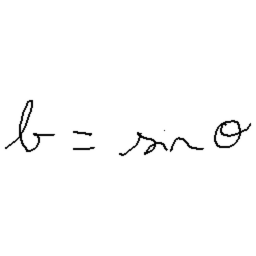 b = sin θ